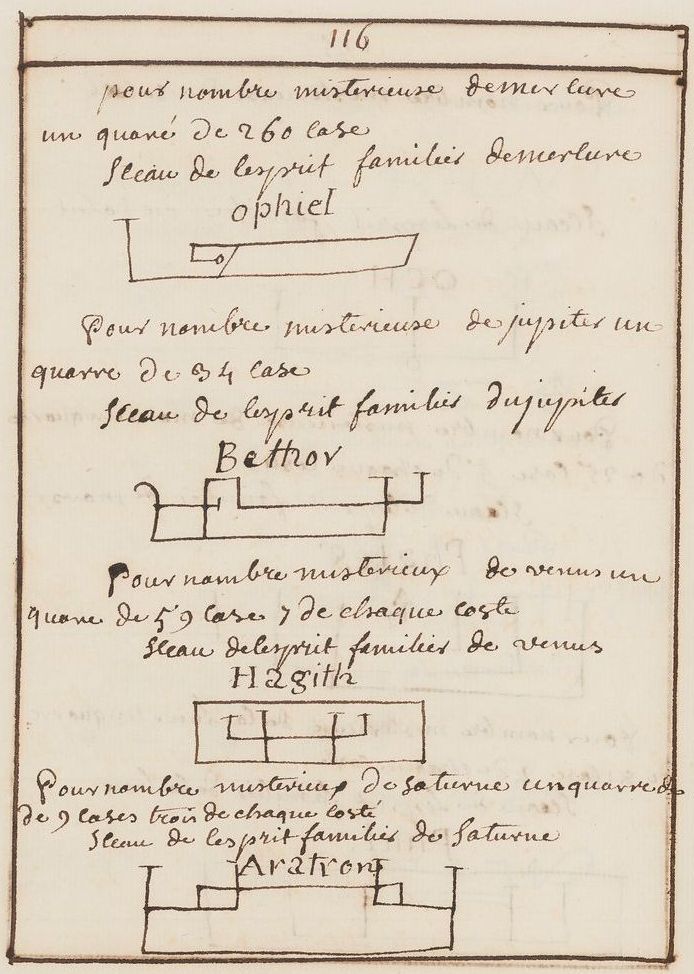 116
pour nombre misterieuse demerlure
un quaré de 260 Case
Sceau de lesprit familier demerlure
ophiel
Pour nombre misterieuse de jupiter un
quarre de 34 Case
Sceau de lesprit familier dujupiter
Bethor
Pour nombre misterieux de venus un
quare de 59 Case 7 de chaque Coste
Sceau delesprit familier de venus
Hagith
Pour nombre misterieux de saturne unquarré de
de 9 Cases trois de chaque Costé
Sceau de lesprit familier de saturne
Aratron